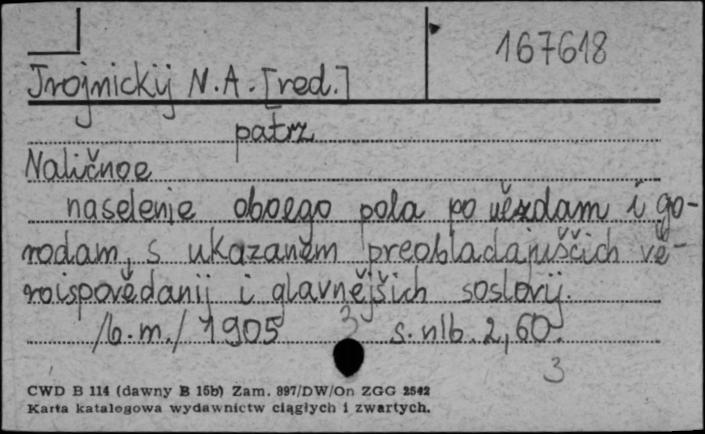 167618
Trojnickij N.A. [red.]
patrz
Naličnoe
naselenie oboego pola po uězdam i go-
rodam, s ukazaněm preobladajuščich vě-
roispovědanij i glavnějšich soslovij.
/b.m./ 1905 3 s. nlb. 2,60.
3
CWD B 114 (dawny B 15b) Zam. 897/DW/On ZGG 2542
Karta katalogowa wydawnictw ciągłych i zwartych.